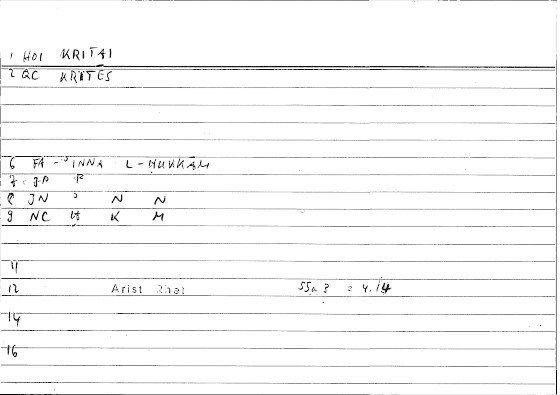 1 HOI KRITAI
2 QC KRITES
6 FA-'INNA L-HUKKĀM
7
8 JN ' N N
9 NC H K M
11
12 Arist Rhet 55a 3 = 4.14
14
16